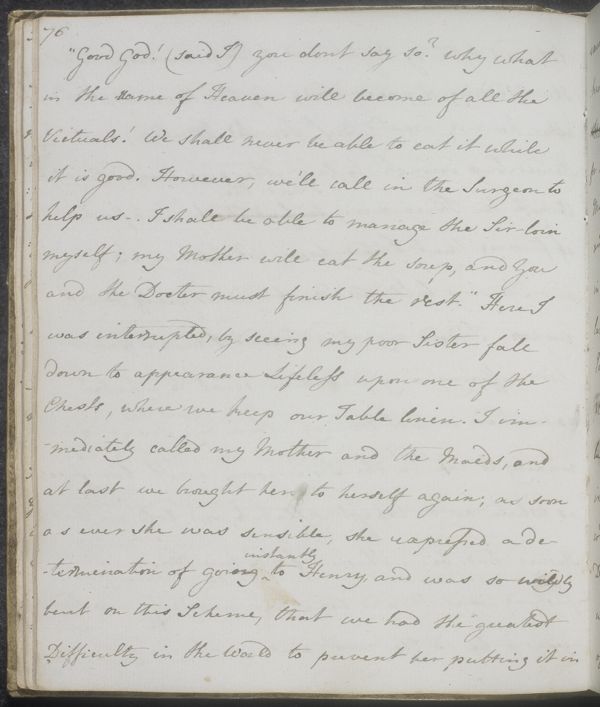 76
"Good God! (said I) you dont say so? Why what
in the name of Heaven will become of all the
Victuals! We shall never be able to eat it while
it is good. However, we'll call in the Surgeon to
help us-. I shall be able to manage the Sir-loin
myself; my Mother will eat the soup, and You
and the Doctor must finish the rest." Here I
was interrupted, by seeing my poor Sister fall
down to appearance Lifeless upon one of the
Chests, where we keep our Table linen. I im-
-mediately called my Mother and the Maids, and
at last we brought her to herself again; as soon
as ever she was sensible, she expressed a de-
instantly
-termination of going to Henry, and was so wildly
bent on this Scheme, that we had the greatest
Difficulty in the World to prevent her putting it in